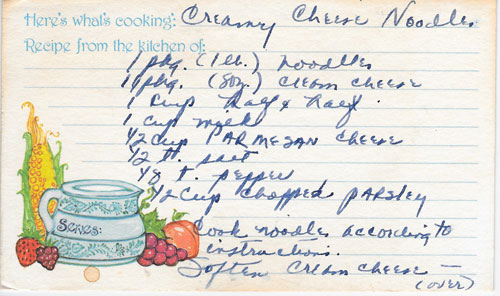 Here's what's cooking: Creamy Cheese Noodles
Recipe from the kitchen of:
1 pkg. (1 lb.) noodles
1 pkg. (8oz.) cream cheese
1 cup Half & Half.
1 cup milk
1/2 cup PARMESAN cheese
1/2 t. salt
1/8 t. pepper
1/2 cup chopped parsley
Serves:
Cook noodles according to
instructions.
Soften cream cheese —
(over)